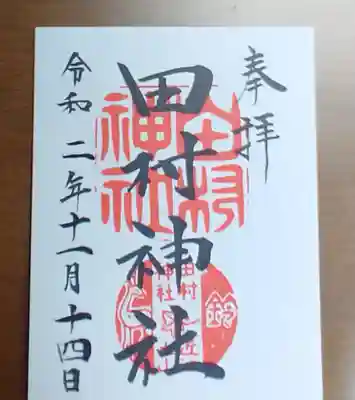 奉拝
田村神社
令和二年十一月十四日
田村
神社
田村
神社
鈴